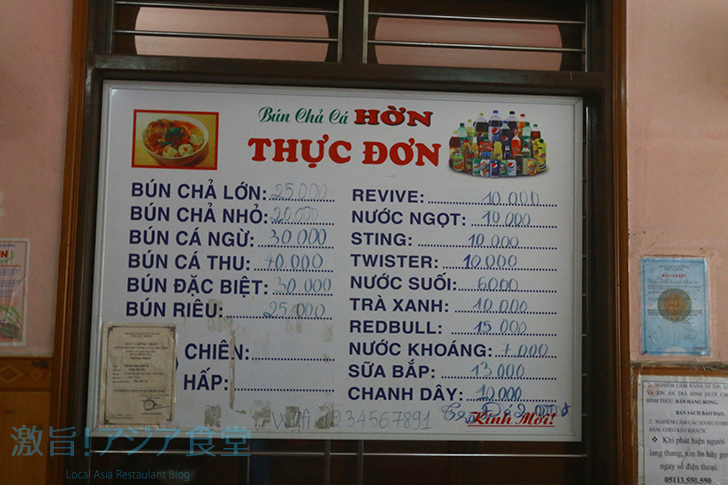 Bún Chả Cá HỜN
THỰC ĐƠN
BÚN CHẢ LỚN: 25.000
BÚN CHẢ NHỎ: 20.000
BÚN CÁ NGỪ: 30.000
BÚN CÁ THU: 40.000
BÚN ĐẶC BIỆT: 30.000
BÚN RIÊU: 25.000
CHIÊN:
HẤP:
REVIVE: 10.000
NƯỚC NGỌT: 10.000
STING: 10.000
TWISTER: 10.000
NƯỚC SUỐI: 6000
TRÀ XANH: 10.000
REDBULL: 15.000
NƯỚC KHOÁNG: 7.000
SỮA BẮP: 13.000
CHANH DÂY: 10.000
Kính Mời!
Wifi 1234567891
激旨!アジア食堂
Local Asia Restaurant Blog
BÁN HÀNG RONG.
❖ Khi phát hiện người
lang thang, xin ăn hãy gọi
số điện thoại:
05113.550.550